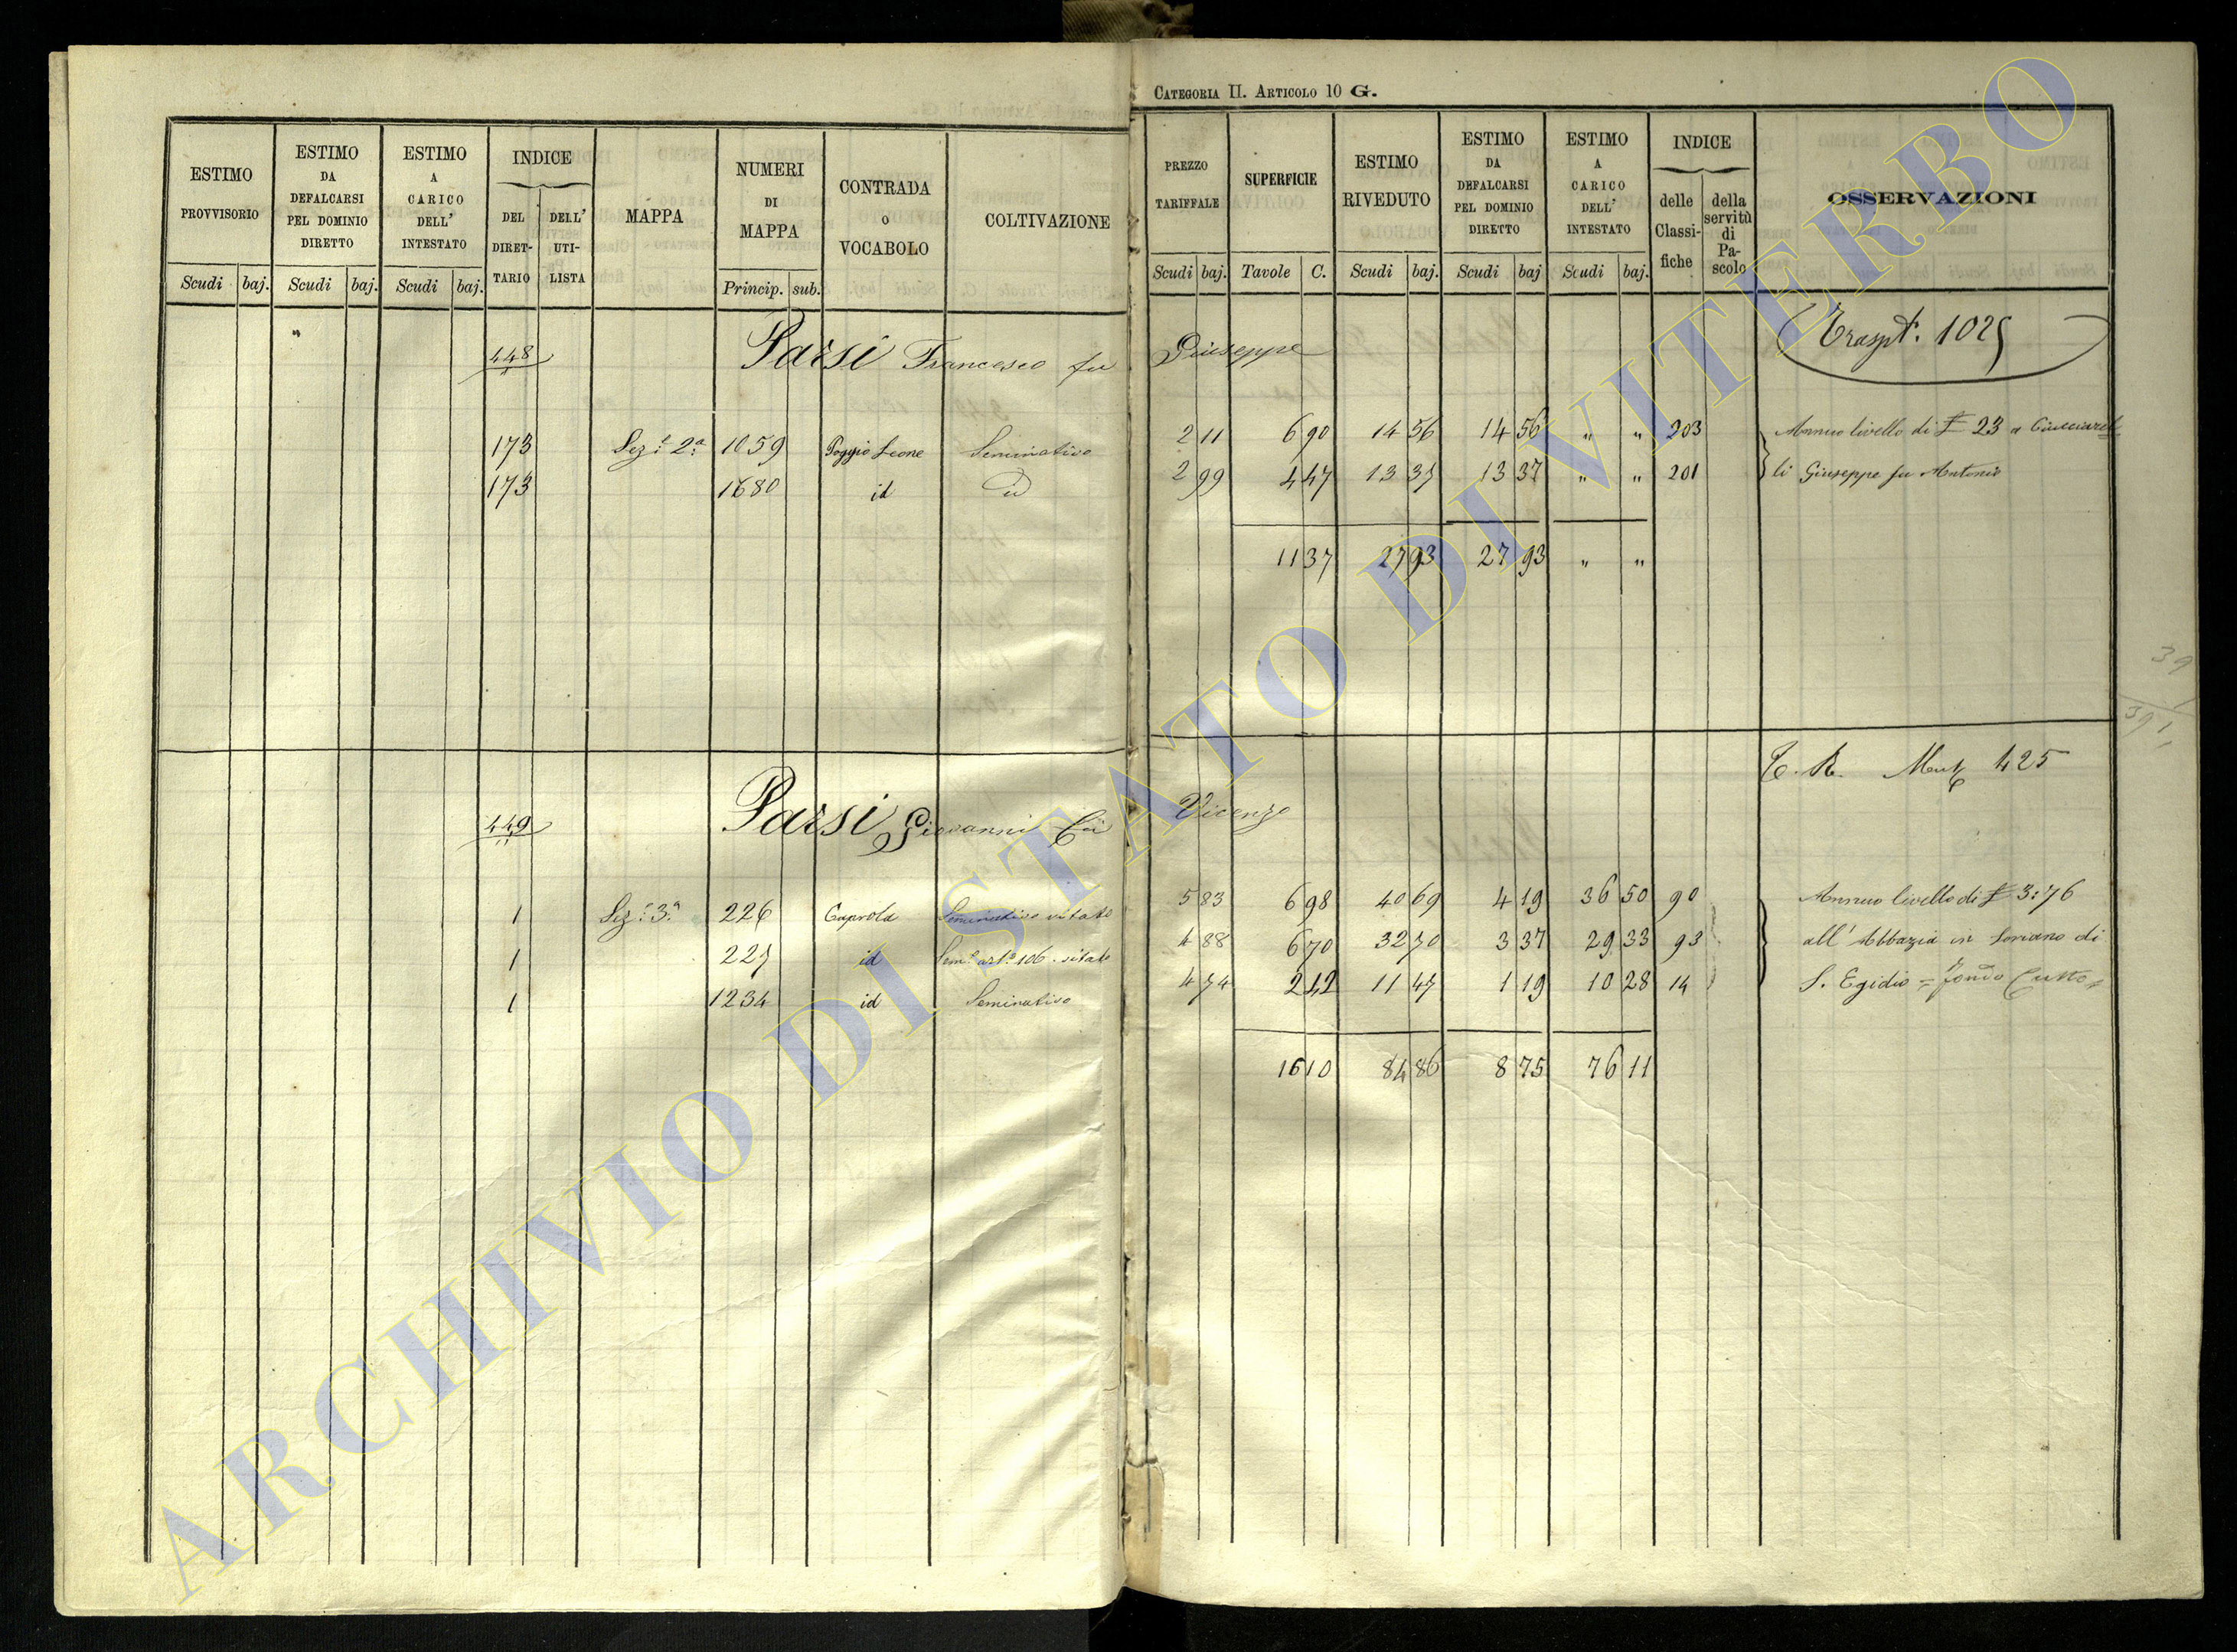 CATEGORIA II. ARTICOLO 10 G.
ESTIMO PROVVISORIO
ESTIMO DA DEFALCARSI PEL DOMINIO DIRETTO
ESTIMO A CARICO DELL' INTESTATO
INDICE
DEL DIRET-TARIO
DELL' UTI-LISTA
MAPPA
NUMERI DI MAPPA
CONTRADA O VOCABOLO
COLTIVAZIONE
PREZZO TARIFFALE
SUPERFICIE
ESTIMO RIVEDUTO
ESTIMO DA DEFALCARSI PEL DOMINIO DIRETTO
ESTIMO A CARICO DELL' INTESTATO
INDICE
delle Classi-fiche
della servitù di Pa-scolo
OSSERVAZIONI
Scudi baj. Scudi baj. Scudi baj. Princip. sub. Scudi baj. Tavole C. Scudi baj. Scudi baj Scudi baj.
448 Parsi Francesco fu Giuseppe Traspt. 1025
173 Sez.e 2a 1059 Poggio Leone Seminativo 2 11 6 90 14 56 14 56 " " 203 Annuo livello di £ 23 a
173 1680 id id 2 99 4 47 13 37 13 37 " " 201 li Giuseppe fu Antonio
11 37 27 93 27 93 " "
39
391
449 Parsi Giovanni fu Vicenzo
425
1 Sez.e 3a 226 Caprola Seminativo vitato 5 83 6 98 40 69 4 19 36 50 90 Annuo livello di £ 3:76
1 227 id Sem.o art.o 106 vitato 4 88 6 70 32 70 3 37 29 33 93 all' Abbazia in Soriano di
1 1234 id Seminativo 4 74 2 42 11 47 1 19 10 28 14 S. Egidio = fondo
16 10 84 86 8 75 76 11
ARCHIVIO DI STATO DI VITERBO